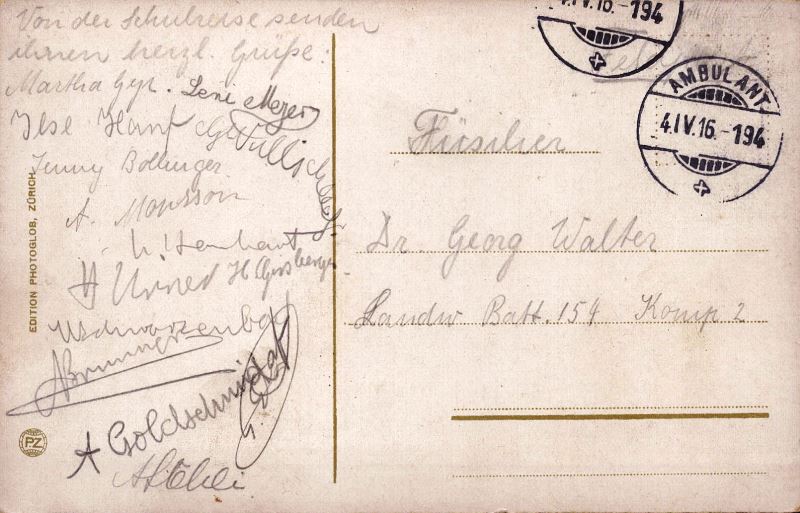 Von der Schulreise senden
ihnen herzl. Grüße:
Martha Gyr. Leni Meyer
Ilse Hanf G. Wullschleg
Jenny Bollinger
A. Monsson
H Urner H Gersberger
Schwarzenbach
Brunner
A Goldschmidt
EDITION PHOTOGLOB, ZÜRICH
PZ
4.IV.16.-194
AMBULANT
4.IV.16.-194
Füsilier
Dr. Georg Walter
Landw Batt. 154 Komp. 2